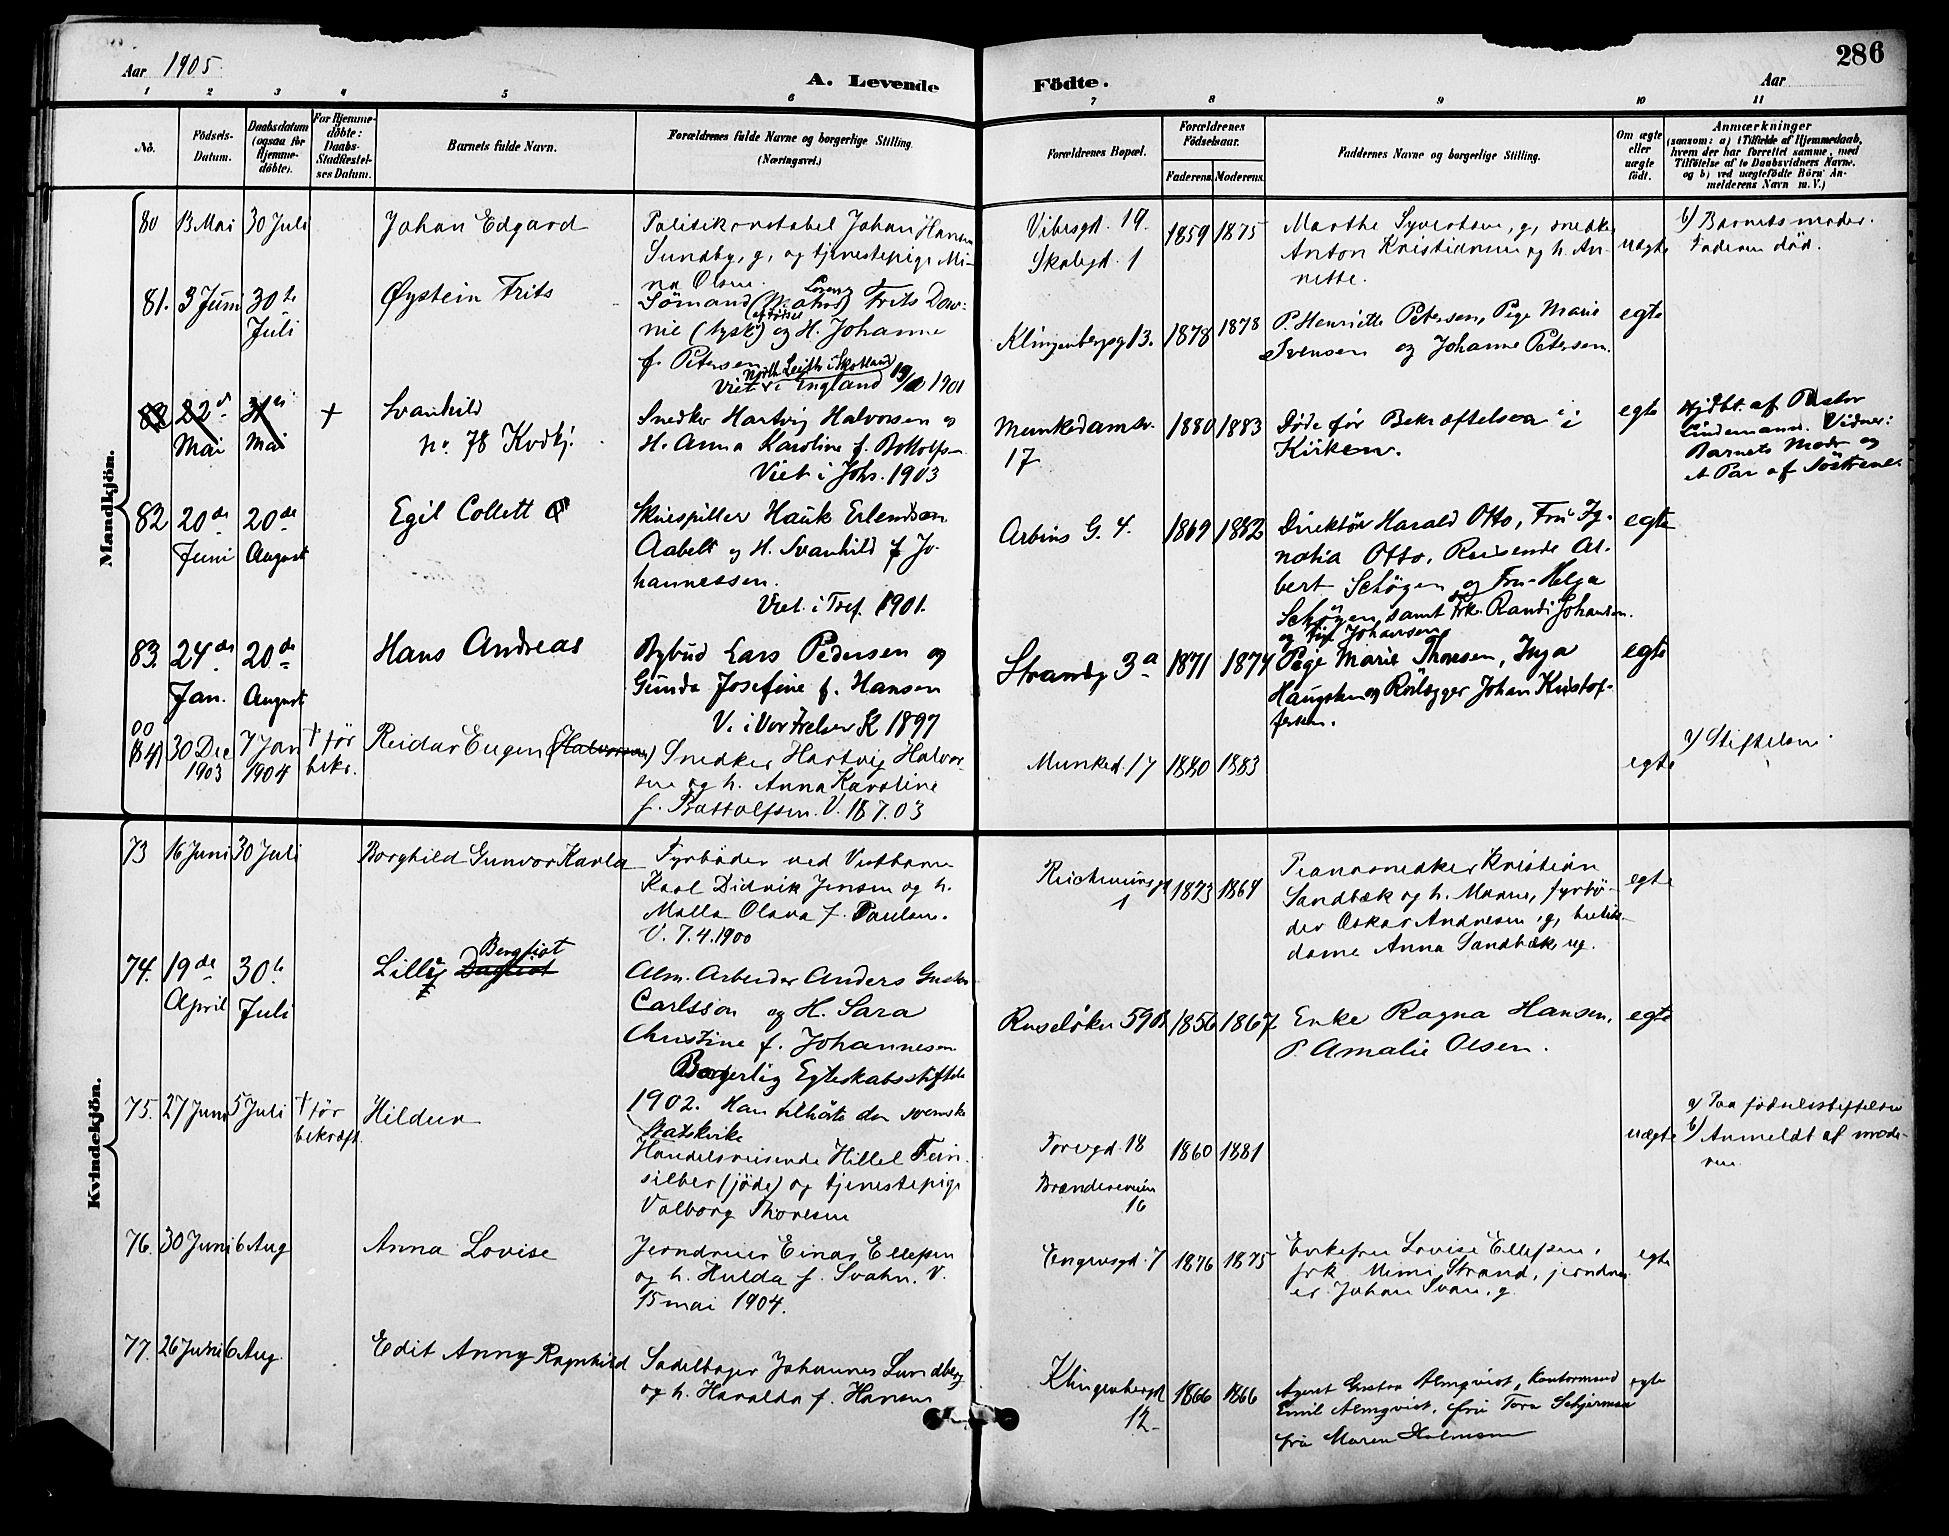 Aar 1905.
A. Levende
Födte.
Aar
286
1 2 3 4 5 6 7 8 9 10 11
No.
Födsels-
Datum.
Daabsdatum
(ogsaa for
Hjemme-
döbte).
For Hjemme-
döbte:
Daabs-
Stadfestel-
ses Datum.
Barnets fulde Navn.
Forældrenes fulde Navne og borgerlige Stilling.
(Næringsvei.)
Forældrenes Bopæl.
Forældrenes
Födselsaar.
Faderens. Moderens.
Faddernes Navne og borgerlige Stilling.
Om ægte
eller
uægte
födt.
Anmærkninger
(saasom: a) i Tilfælde af Hjemmedaab,
hvem der har forrettet samme, med
Tilföielse af to Daabsvidners Navne,
og b) ved uægtefödte Börn An-
melderens Navn m. V.)
Mandkjön.
80 13 Mai 30 Juli
Johan Edgard
Politikonstabel Johan Hansen
Sundby, g, og tjenestepige Mi-
na Olsen.
Vibesgd. 19.
Skolegd. 1
1859 1875
Marthe Syvertsen, g, snedker
Anton Kristiansen og h. An-
nette.
uægte
b) Barnets moder.
Faderen død.
81. 3 Juni 30te
Juli
Øystein Frits
Sømand Frits Daw-
nie (tysk) og H. Johanne
f. Petersen
North Leith i Skotland
Viet i England 1901
Klingenbergg 13.
1878 1878
P. Henriette Petersen, Pige Marie
Svensen og Johanne Petersen.
egte
82 22de
Mai
Mai
+
Svanhild
No 78 Kvdkj.
Snedker Hartvig Halvorsen og
H. Anna Karoline f. Bottolfsen
Viet i Johs. 1903
Munkedamsv.
17
1880 1883
Døde før Bekræftelsen i
Kirken.
egte
Hjdbt. af Pastor
Lindemann. Vidner:
Barnets Moder og
et Par af Söstrene.
82 20de
Juni
20de
August
Egil Collett
Skuespiller Hauk Erlendsen
Aabelt og H. Svanhild f Jo-
hannessen.
Viet i Tref. 1901.
Arbins G. 4.
1869 1882
Direktør Harald Otto, Fru Ig-
natia Otto, Reisende Al-
bert Schøgen og Fru Helga
Schøgen, samt Frk. Randi Johansen
og Johansen
egte
83. 24de
Jan.
20de
August
Hans Andreas
Bybud Lars Pedersen og
Gunda Josefine f. Hansen
V. i Vor Frelser K 1897
Strandg 3a
1871 1874
Pige Marie Thoresen, Inga
Haugsten og Rörlægger Johan Kristof-
fersen.
egte
00
(84) 30 Dec
1903
7 Jan
1904
† før
bekr.
Reidar Eugen (Halvorsen)
Snedker Hartvig Halvor-
sen og h. Anna Karoline
f. Bottolfsen. V. 18.7.03
Munked. 17
1880 1883
egte
a) Stiftelsen.
Kvindekjön.
73 16 Juni 30 Juli
Borghild Gunvor Karla
Fyrbøder ved Vestbanen
Karl Didrik Jensen og h.
Malla Olava f. Paulsen.
V. 7.4.1900
1
1873 1864
Pianosnedker Kristian
Sandbæk og h. Maren, fyrbø-
der Oskar Andresen, g, butik-
dame Anna Sandbæk, ug.
egte
74. 19de
April
30te
Juli
Lilly Bergliot
Alm. Arbeider Anders Gustav
Carlsson og H. Sara
Christine f. Johannesen
Borgerlig Egteskabsstiftelse
1902. Han tilhörte den svenske
Statskirke
Ruseløkv 59b.
1856 1867
Enke Ragna Hansen,
P. Amalie Olsen.
egte
75. 27 Juni 5 Juli
† før
bekræft.
Hildur
Handelsreisende Hillel Fein-
silber (jøde) og tjenestepige
Valborg Thoresen
Torvgd. 18
16
1860 1881
uægte
a) Paa fødselsstiftelsen
b) Anmeldt af mode-
ren.
76. 30 Juni 6 Aug
Anna Lovise
Jerndreier Einar Ellefsen
og h. Hulda f. Svahn. V.
15 mai 1904.
7
1876 1875
Enkefru Lovise Ellefsen,
frk Mimi Strand, jerndrei-
er Johan Svan, g.
egte
77. 26 Juni 6 Aug.
Edit Anny Ragnhild
Sadelmager Johannes Lundberg
og h. Haralda f. Hansen
Klingenberggd
12
1866 1866
Agent Gustav Almqvist, kontormand
Emil Almqvist, fru Tora
fru Maren Holmsen
egte